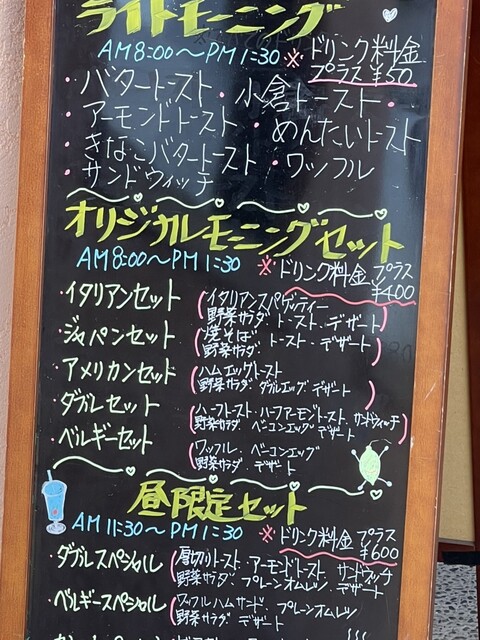 ライトモーニング
AM8:00～PM1:30 ※ドリンク料金
プラス¥50
・バタートースト・小倉トースト・
・アーモンドトースト・めんたいトースト
・きなこバタートースト・ワッフル
・サンドウィッチ
オリジナルモーニングセット
AM8:00～PM1:30 ※ドリンク料金プラス
¥400
・イタリアンセット (イタリアンスパゲッティー
野菜サラダ・トースト・デザート)
・ジャパンセット (焼そば・トースト・デザート
野菜サラダ)
・アメリカンセット (ハムエッグトースト
野菜サラダ・ダブルエッグ・デザート)
・ダブルセット (ハーフトースト・ハーフアーモンドトースト・サンドウィッチ
野菜サラダ・ベーコンエッグ・デザート)
・ベルギーセット (ワッフル・ベーコンエッグ
野菜サラダ・デザート)
昼限定セット
AM11:30～PM1:30 ※ドリンク料金プラス
¥600
・ダブルスペシャル (厚切りトースト・アーモンドトースト サンドウィッチ
野菜サラダ・プレーンオムレツ・デザート
・ベルギースペシャル (ワッフルハムサンド・プレーンオムレツ
野菜サラダ・デザート